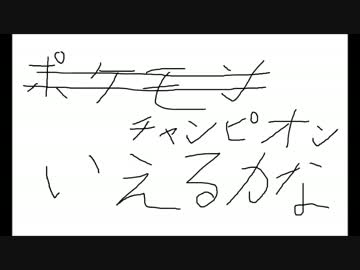 ポケモン
チャンピオン
いえるかな